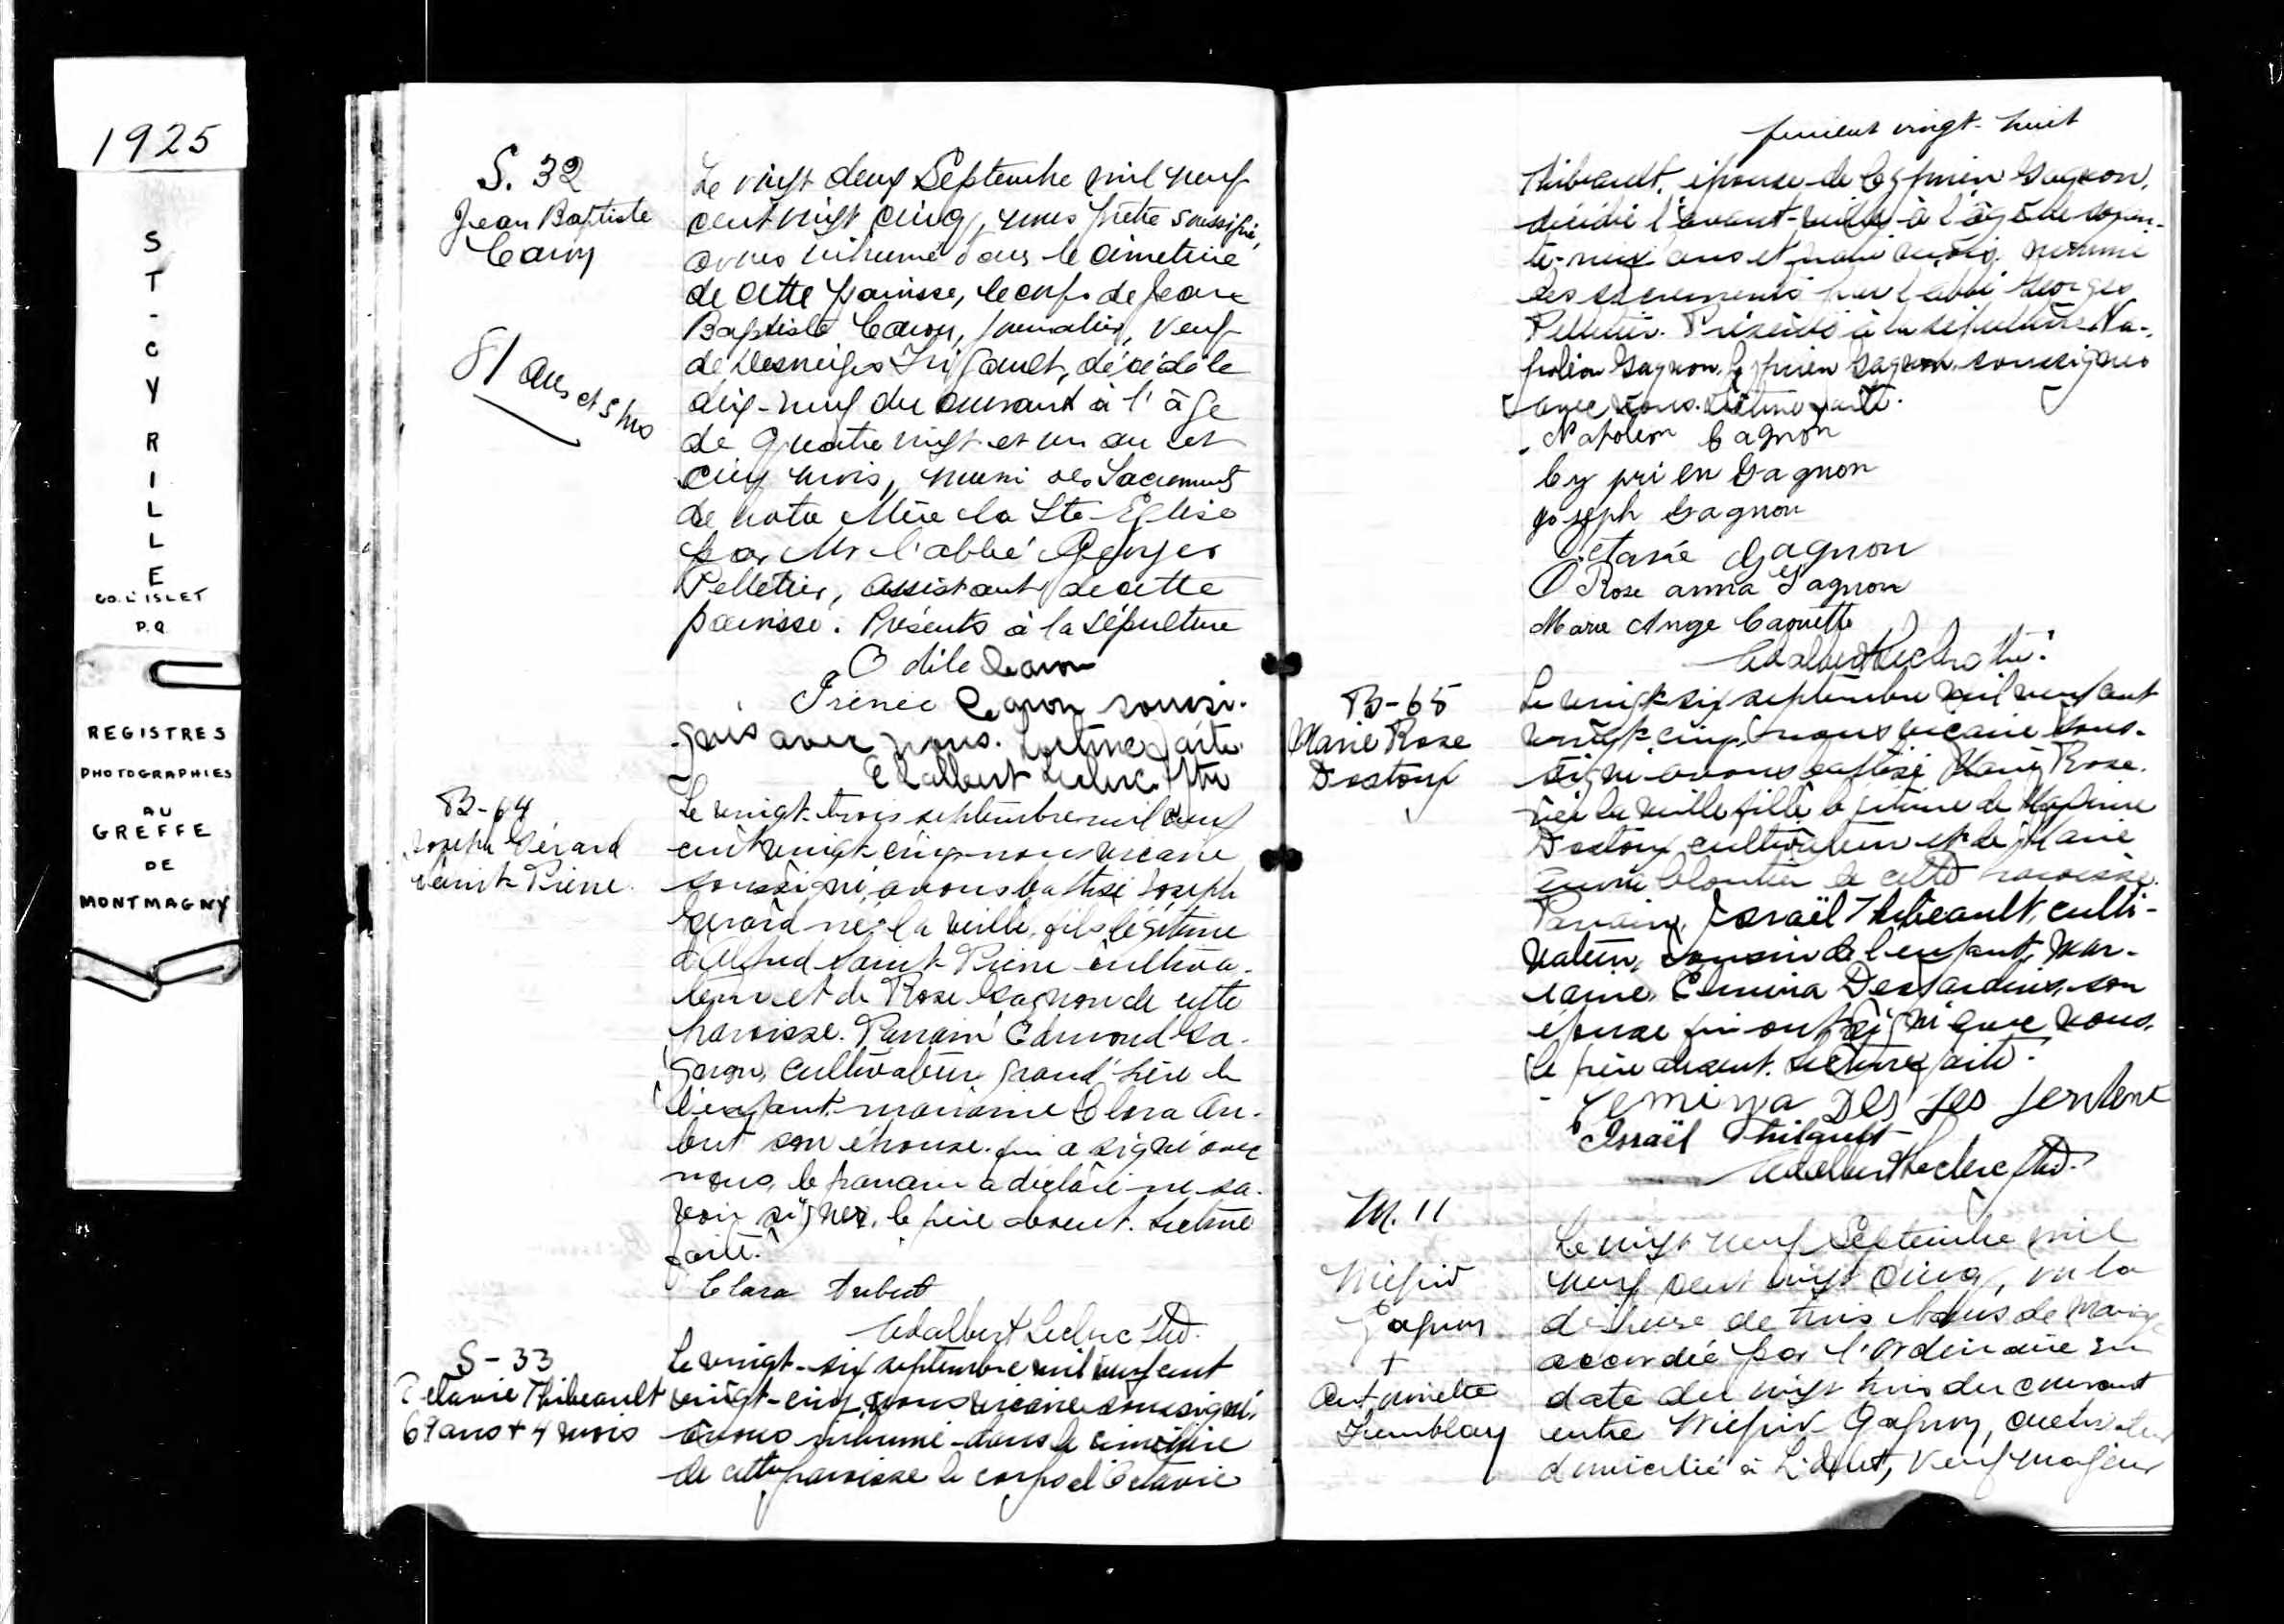 1925
ST-CYRILLE
CO. L'ISLET
P.Q.
REGISTRES
PHOTOGRAPHIES
AU
GREFFE
DE
MONTMAGNY
S. 32
Jean Baptiste
Caron
81 ans et 5 ms
Le vingt deux Septembre mil neuf
cent vingt cinq, nous prêtre soussigné,
avons inhumé dans le cimetière
de cette paroisse, le corps de Jean
Baptiste Caron, journalier, veuf
de Desneiges, décédé le
dix-neuf du courant à l'âge
de quatre vingt et un an et
cinq mois, muni des Sacrements
de notre Mère la Ste Eglise
par Mr l'abbé Georges
Pelletier, assistant de cette
paroisse. Présents à la sépulture
Odile Caron
Irénée Caron soussi-
gnés avec nous. Lecture faite.
Adalbert Leclerc Ptre
B-64
Joseph Gérard
Saint-Pierre
Le vingt-trois septembre mil neuf
cent vingt-cinq nous vicaire
soussigné, avons baptisé Joseph
Gérard né la veille, fils légitime
d'Alfred Saint-Pierre cultiva-
teur et de Rose Gagnon de cette
paroisse. Parrain Edmond Ga-
gnon, cultivateur grand'père de
l'enfant, marraine Clara Au-
but son épouse qui a signé avec
nous, le parrain a déclaré ne sa-
voir signer, le père absent. Lecture
faite.
Clara Aubut
Adalbert Leclerc Ptre.
S-33
Octavie Thibeault
69 ans + 4 mois
Le vingt-six septembre mil neuf cent
vingt-cinq, nous vicaire soussigné,
avons inhumé dans le cimetière
de cette paroisse le corps d'Octavie
feuillet vingt-huit
Thibeault, épouse de Cyprien Gagnon,
décédée l'avant-veille à l'âge de soixan-
te-neuf ans et quatre mois, munie
des sacrements par l'abbé Georges
Pelletier. Présents à la sépulture Na-
poléon Gagnon, Cyprien Gagnon soussignés
avec nous. Lecture faite.
Napoleon Gagnon
Cyprien Gagnon
Joseph Gagnon
Octavie Gagnon
Rose anna Gagnon
Marie Ange Caouette
Adalbert Leclerc Ptre.
B-65
Marie Rose
Dostoux
Le vingt-six septembre mil neuf cent
vingt-cinq, nous vicaire sous-
signé avons baptisé Marie Rose
née la veille fille légitime de
Dostoux cultivateur et de Marie
Cloutier de cette paroisse.
Parrain, Israël Thibeault, culti-
vateur, cousin de l'enfant, mar-
raine, Elmina Desjardins, son
épouse qui ont signé avec nous,
le père absent. Lecture faite.
Israël Thibault
Adalbert Leclerc Ptre.
M. 11
Wilfrid
Gagnon
+
Antoinette
Tremblay
Le vingt neuf Septembre mil
neuf cent vingt cinq, vu la
dispense de trois bans de mariage
accordée par l'ordinaire en
date du vingt trois du courant
entre Wilfrid Gagnon, cultivateur
domicilié à L'Islet, veuf majeur